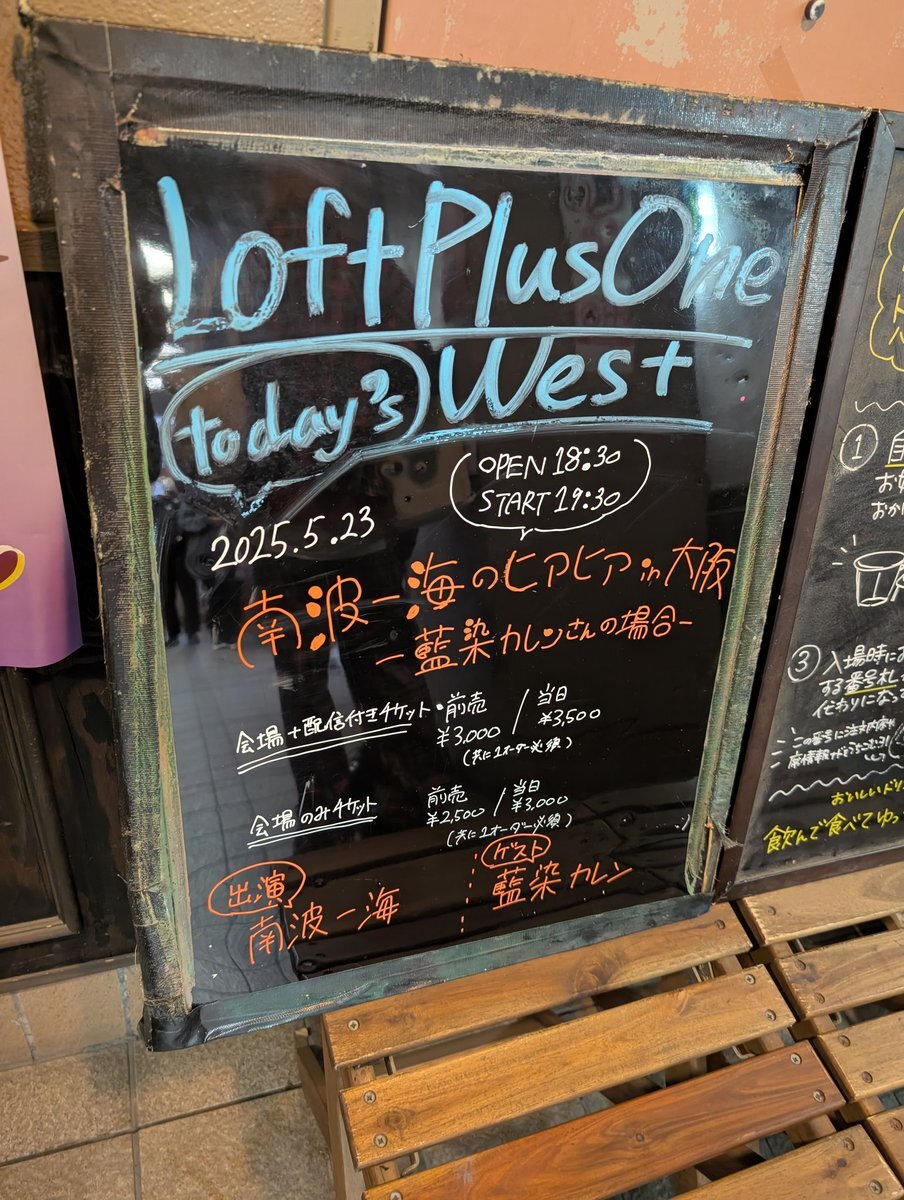 LoftPlusOne
West
today's
OPEN 18:30
START 19:30
2025.5.23
南波一海のヒアヒア in 大阪
-藍染カレンさんの場合-
会場+配信付きチケット・前売 / 当日
¥3,000 ¥3,500
(共に1オーダー必須)
会場のみチケット 前売 / 当日
¥2,500 ¥3,000
(共に1オーダー必須)
出演
南波一海
ゲスト
藍染カレン
①
お
おか
③ 入場時にお
する番号札
代わりにな
この番号に注文内容や
おいしいドリ
飲んで食べてゆっ